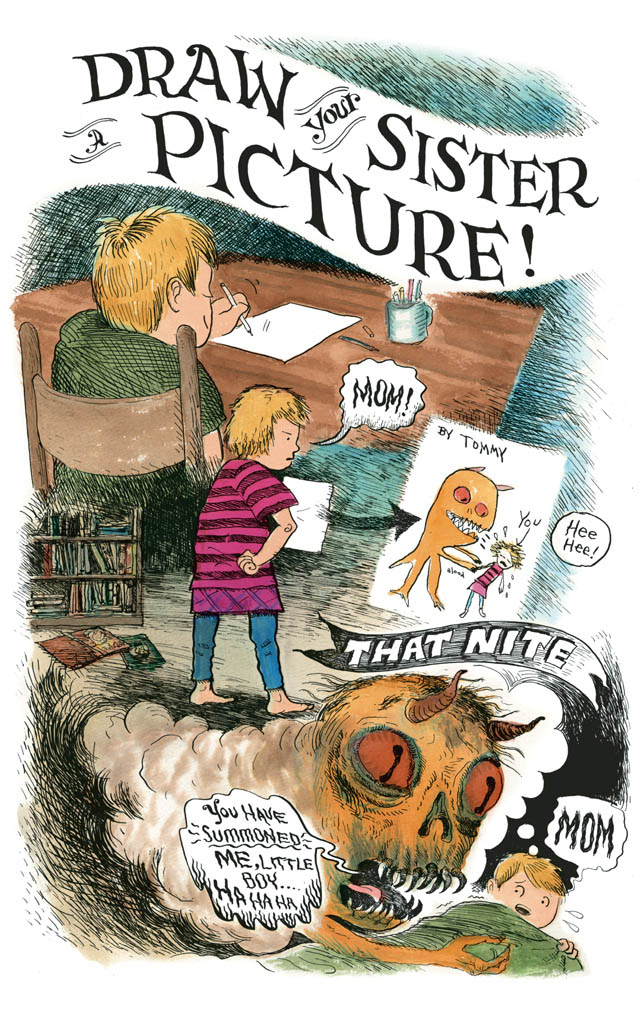 DRAW your SISTER
A PICTURE!
MOM!
BY TOMMY
YOU
blood
Hee
Hee!
THAT NITE
YOU HAVE
SUMMONED
ME, LITTLE
BOY...
HA HA HA
MOM